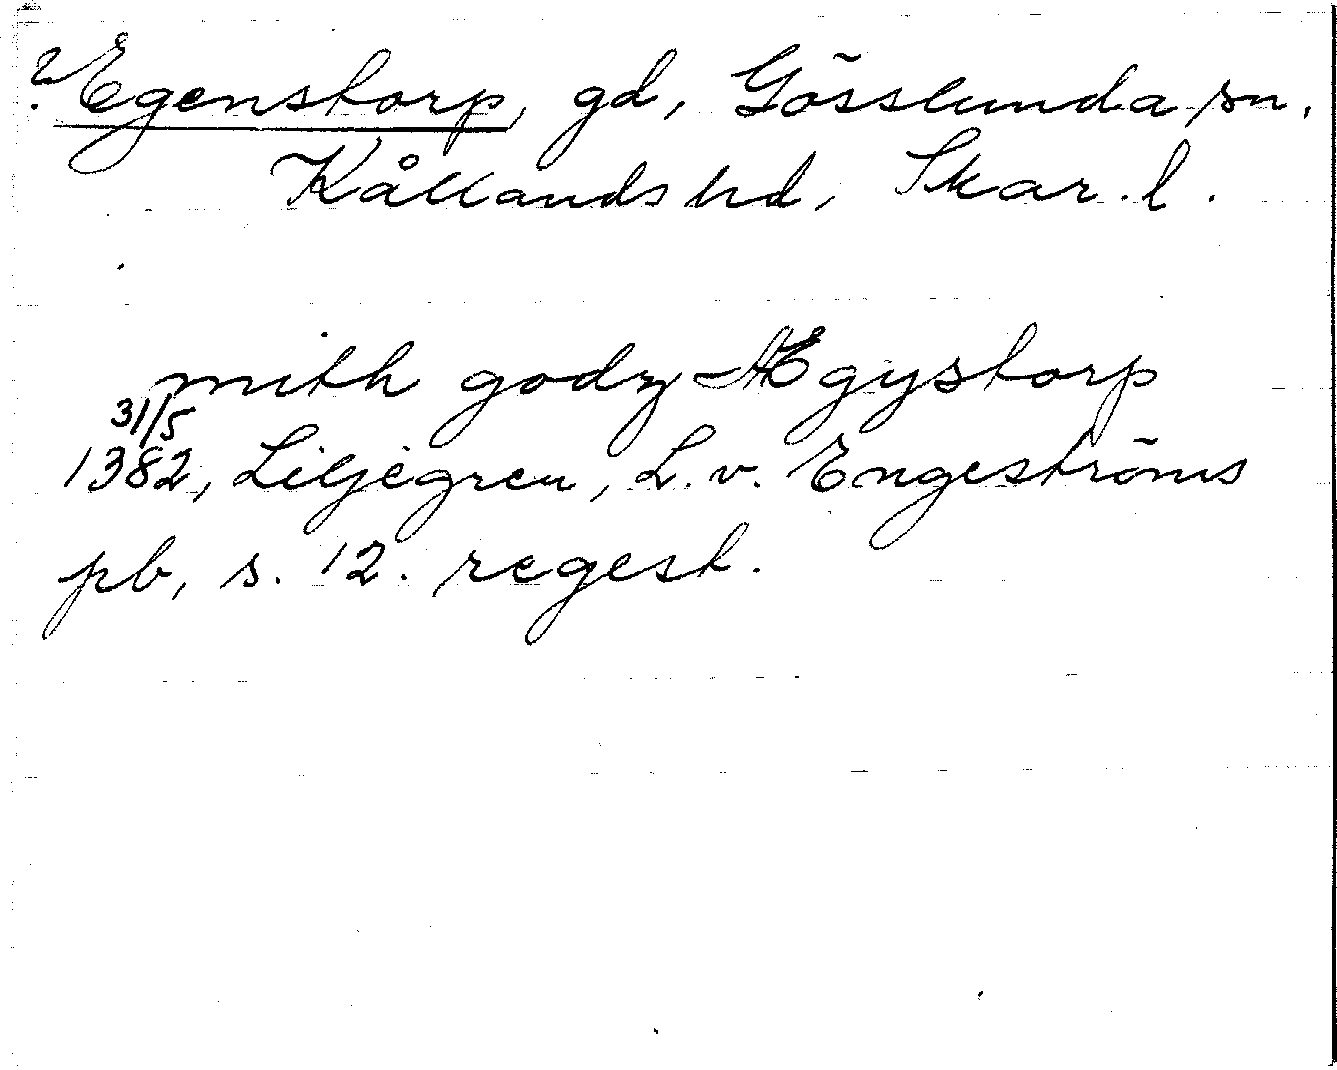 ? Egenstorp, gd, Gösslunda sn.
Kållands hd, Skar. l.
mith godz Ægystorp
31/5
1382, Liljegren, L. v. Engeströms
pb, s. 12. regest.